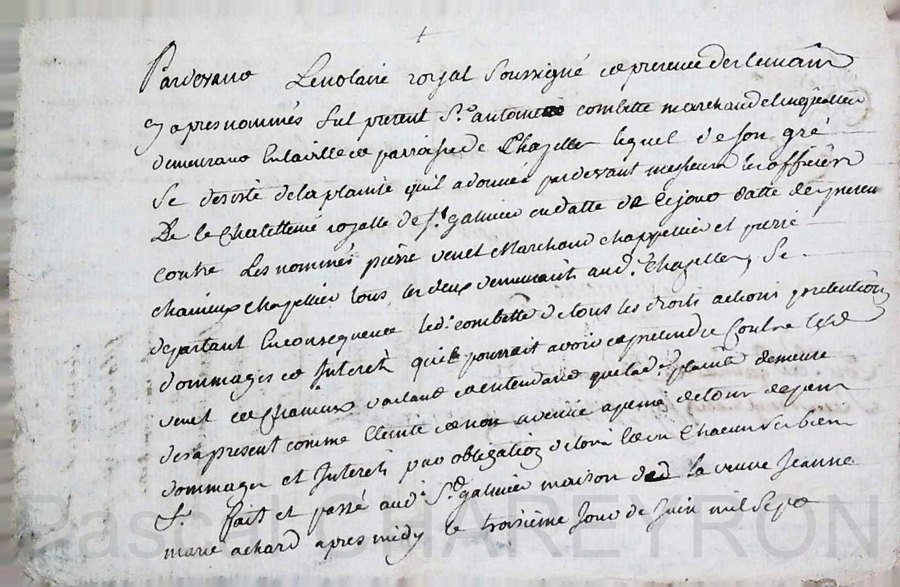 Pardevant Le notaire royal soussigné et presence des temoins
cy apres nommés fut present Sr. antoine combette marchand
demeurant en la ville et parroisse de Chazelles lequel de son gré
se desiste de la plainte qu'il a donnée pardevant messieurs les officiers
De la Chatellenie royalle de St. galmier en datte de ce jour
contre Les nommés pierre venet Marchand chappellier et pierre
chanieux chapellier tous les deux demeurants aud. Chazelles, se
departant En consequence led. combette de tous les droits actions pretentions
dommages et Interets qu'il pourrait avoir et pretendre Contre lesd.
venet et Chanieux voulant et entendant que lad. plainte demeure
des a present comme Eteinte et non avenue a peine de tous depens
dommages et Interets par obligation de tous Chacun ses biens
fait et passé aud. St. galmier maison de la veuve Jeanne
marie achard apres midy le troisieme Jour de Juin mil Sept
Pascal CHAREYRON